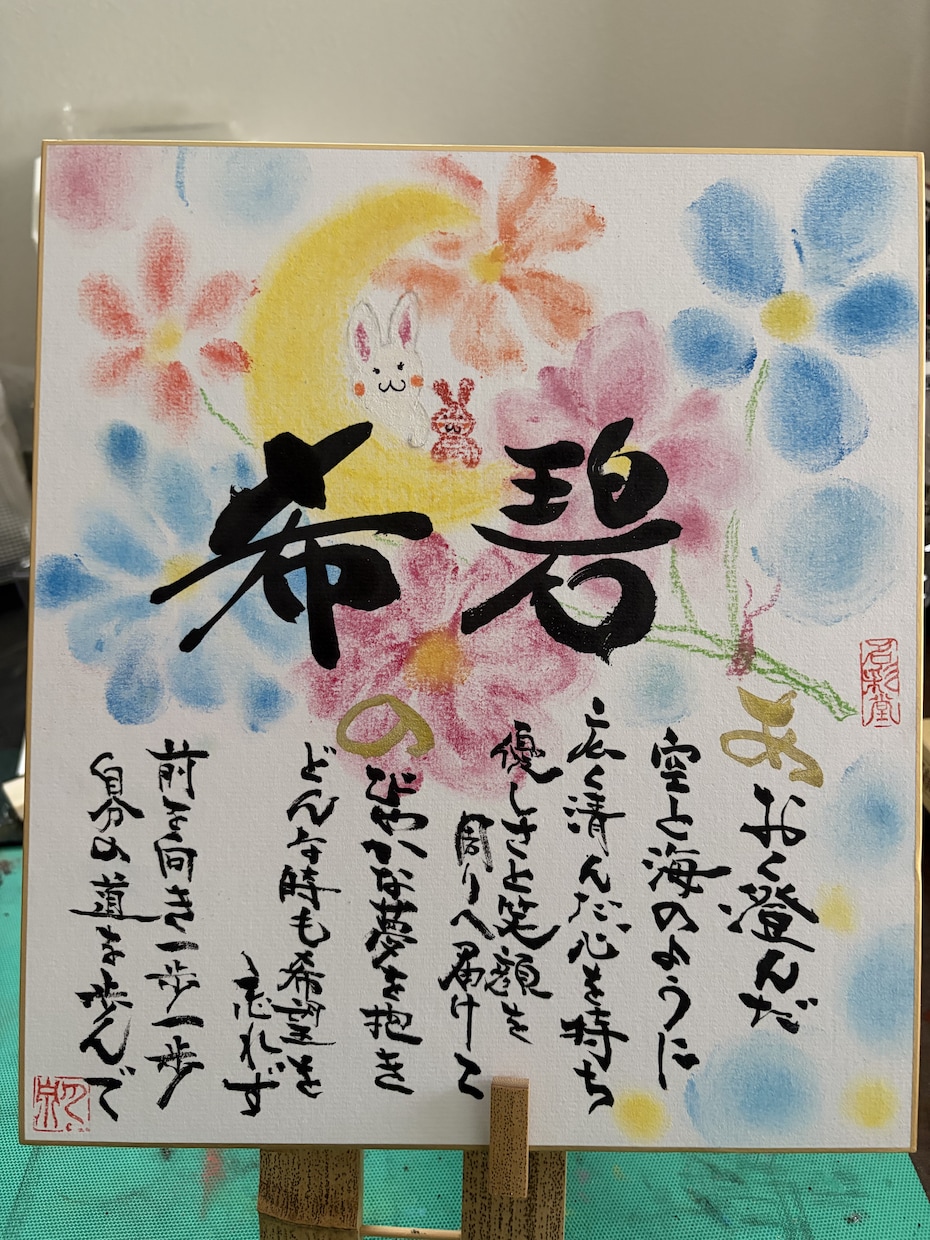 碧希
あおく澄んだ
空と海のように
広く清んだ心を持ち
優しさと笑顔を
周りへ届けて
のびやかな夢を抱き
どんな時も希望を
忘れず
前を向き一歩一歩
自分の道を歩んで
名彩堂